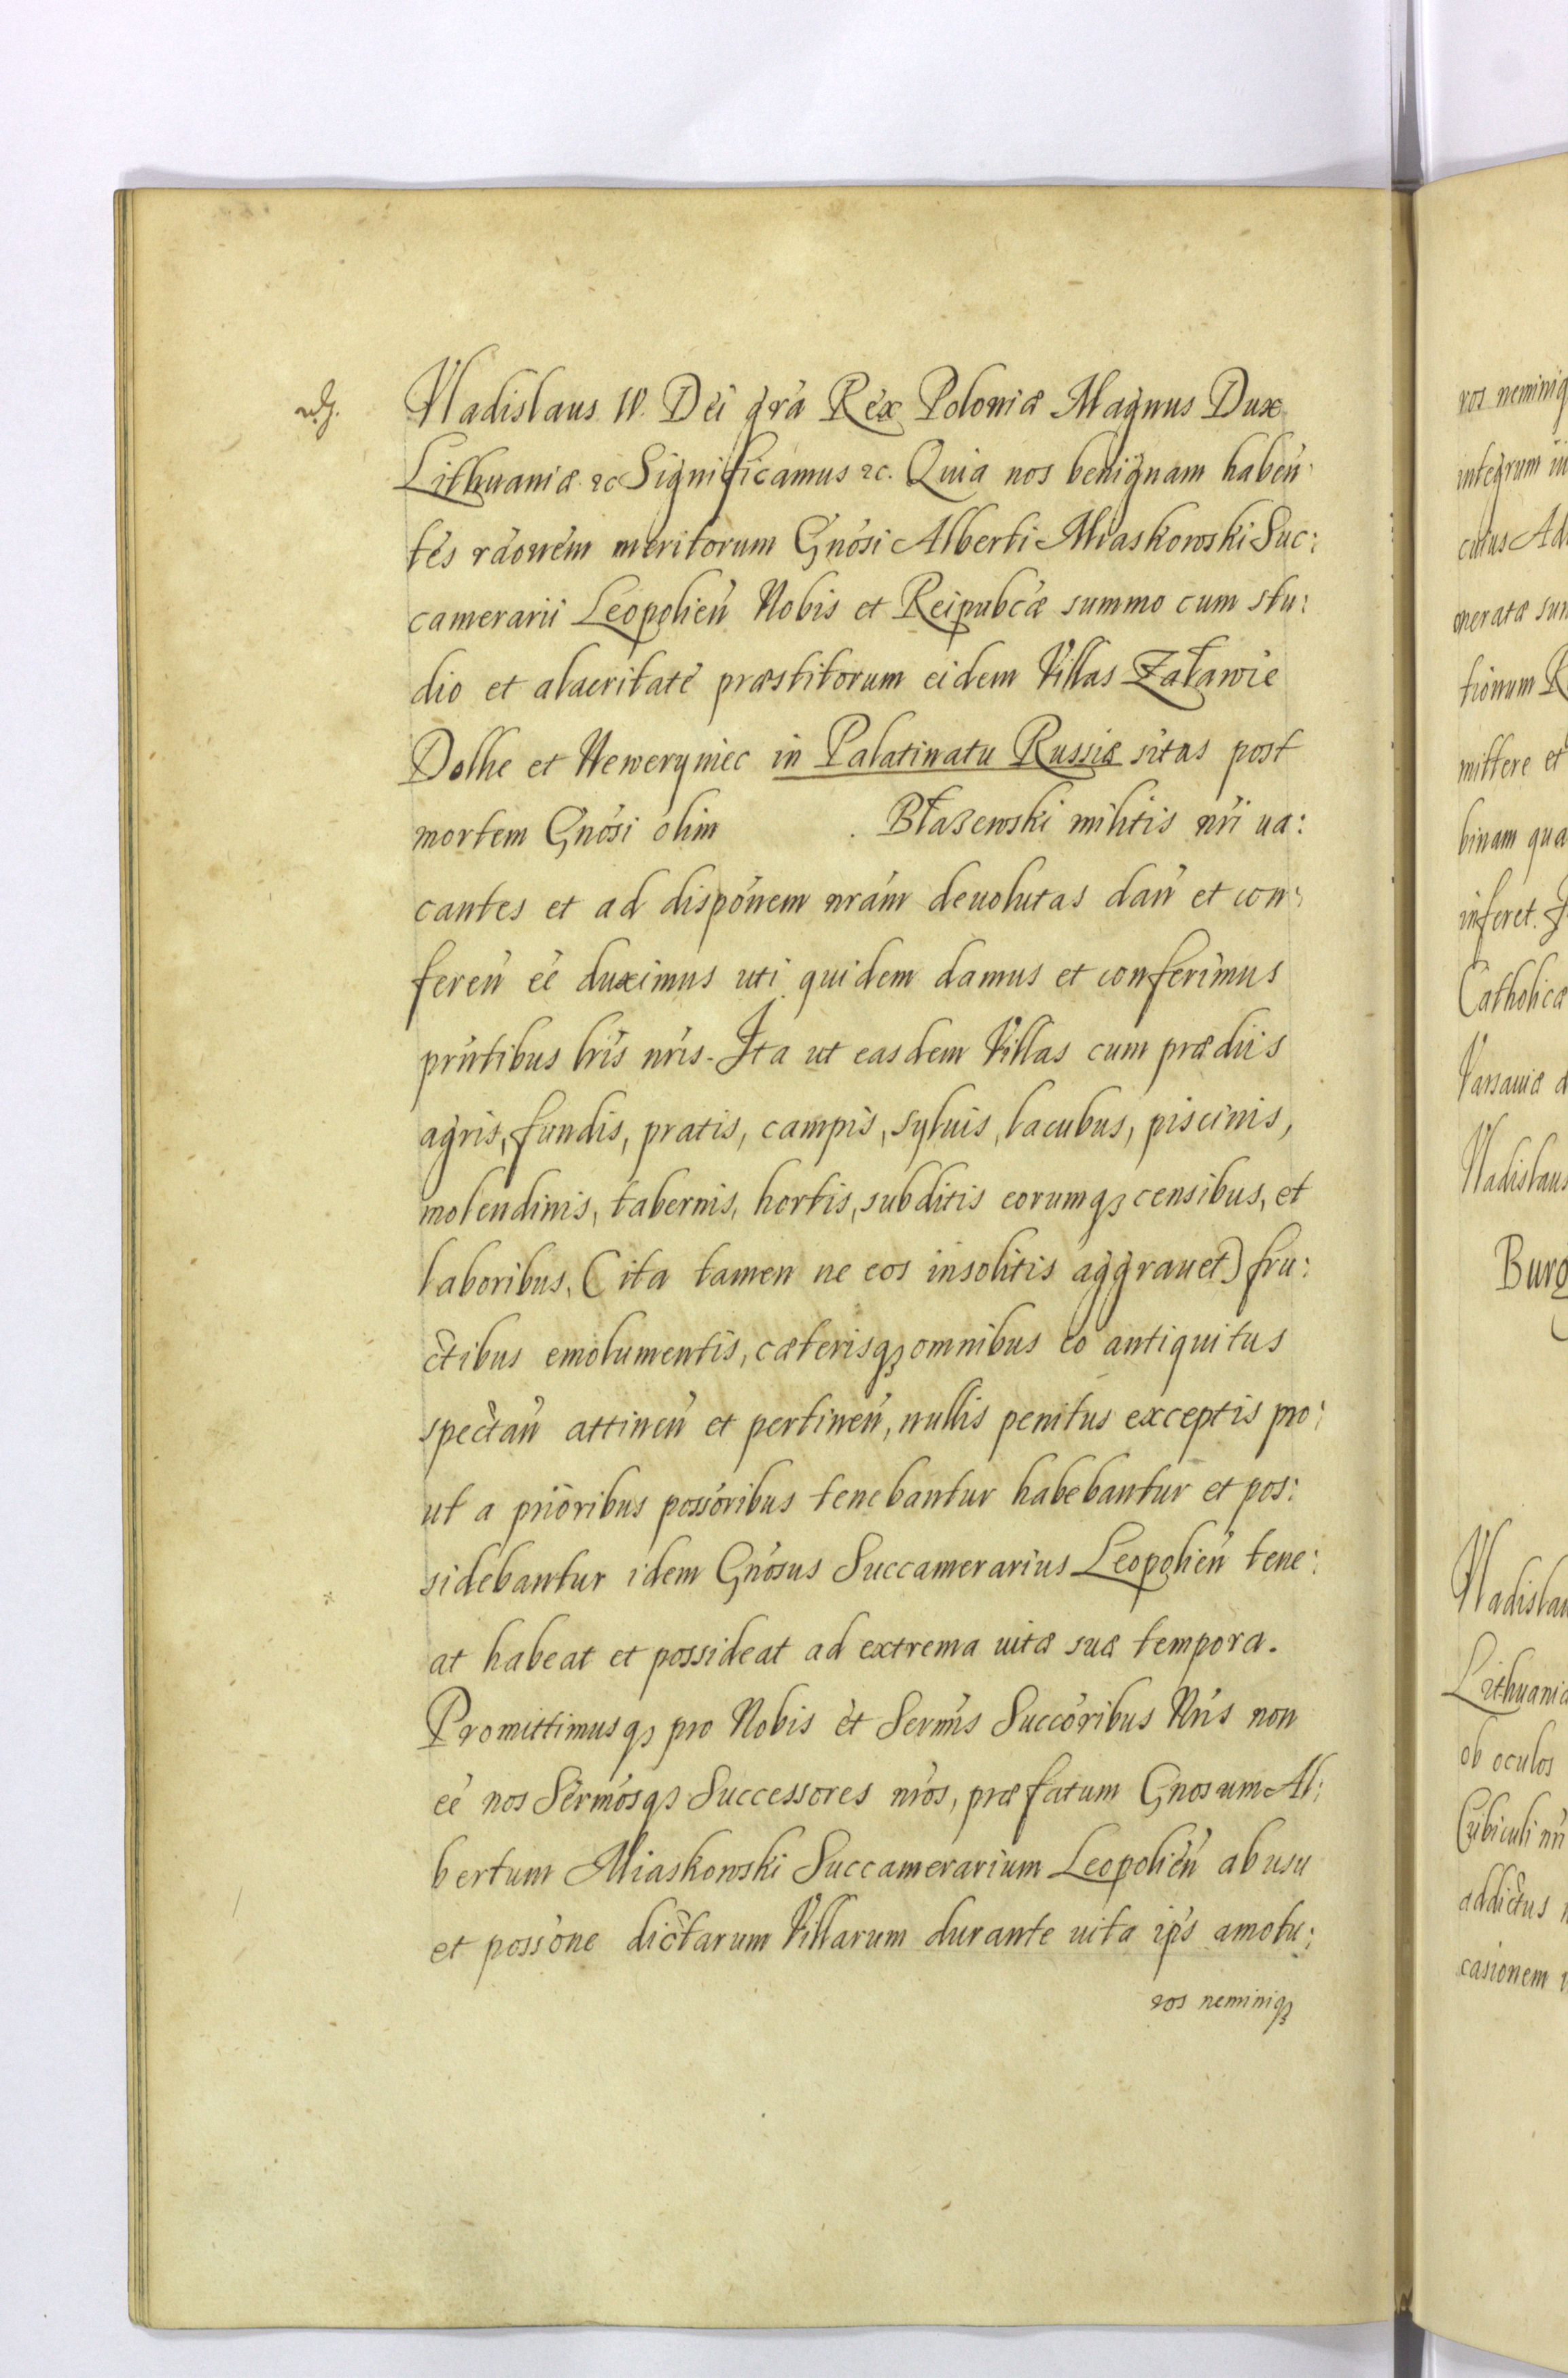 Vladislaus IV. Dei grã Rex Poloniæ Magnus Dux
Lithuaniæ ꝛc Significamus ꝛc. Quia nos benignam haben̄:
tes rãonem meritorum Gnosi Alberti Miaskowski Suc:
camerarii Leopolien̄ Nobis et Reipubcæ summo cum stu:
dio et alacritate præstitorum eidem Villas Załawie
Dolhe et Neweryniec in Palatinatu Russiæ sitas post
mortem Gnosi olim . Błażewski militis nri ua:
cantes et ad disponem nram deuolutas dan̄ et con:
feren̄ eē duximus uti quidem damus et conferimus
prntibus lris nris. Ita ut easdem Villas cum prædiis
agris, fundis, pratis, campis, syluis, lacubus, piscinis,
molendinis, tabernis, hortis, subditis eorumqꝫ censibus, et
laboribus, (ita tamen ne eos insolitis aggrauet) fru:
ctibus emolumentis, cæterisqꝫ omnibus eo antiquitus
spectan̄ attinen̄ et pertinen̄, nullis penitus exceptis pro:
ut a prioribus possoribus tenebantur habebantur et pos:
sidebantur idem Gnosus Succamerarius Leopolien̄ tene:
at habeat et possideat ad extrema uitæ suæ tempora.
Promittimusqꝫ pro Nobis et Sermis Succoribus Nris non
eē nos Sermosqꝫ Successores nros, præfatum Gnosum Al:
bertum Miaskowski Succamerarium Leopolien̄ ab usu
et possone dictarum Villarum durante uita ips amotu:
ros neminiqꝫ
ros neminiq
integrum
cuius Ad
oneratæ sun
tionum
mittere et
binam qua
inferet.
Catholicæ
Varsauiæ d
Vladislaus
Burg
Vladislau
Lithuania
ob oculos
Cubiculi nri
addictus
casionem